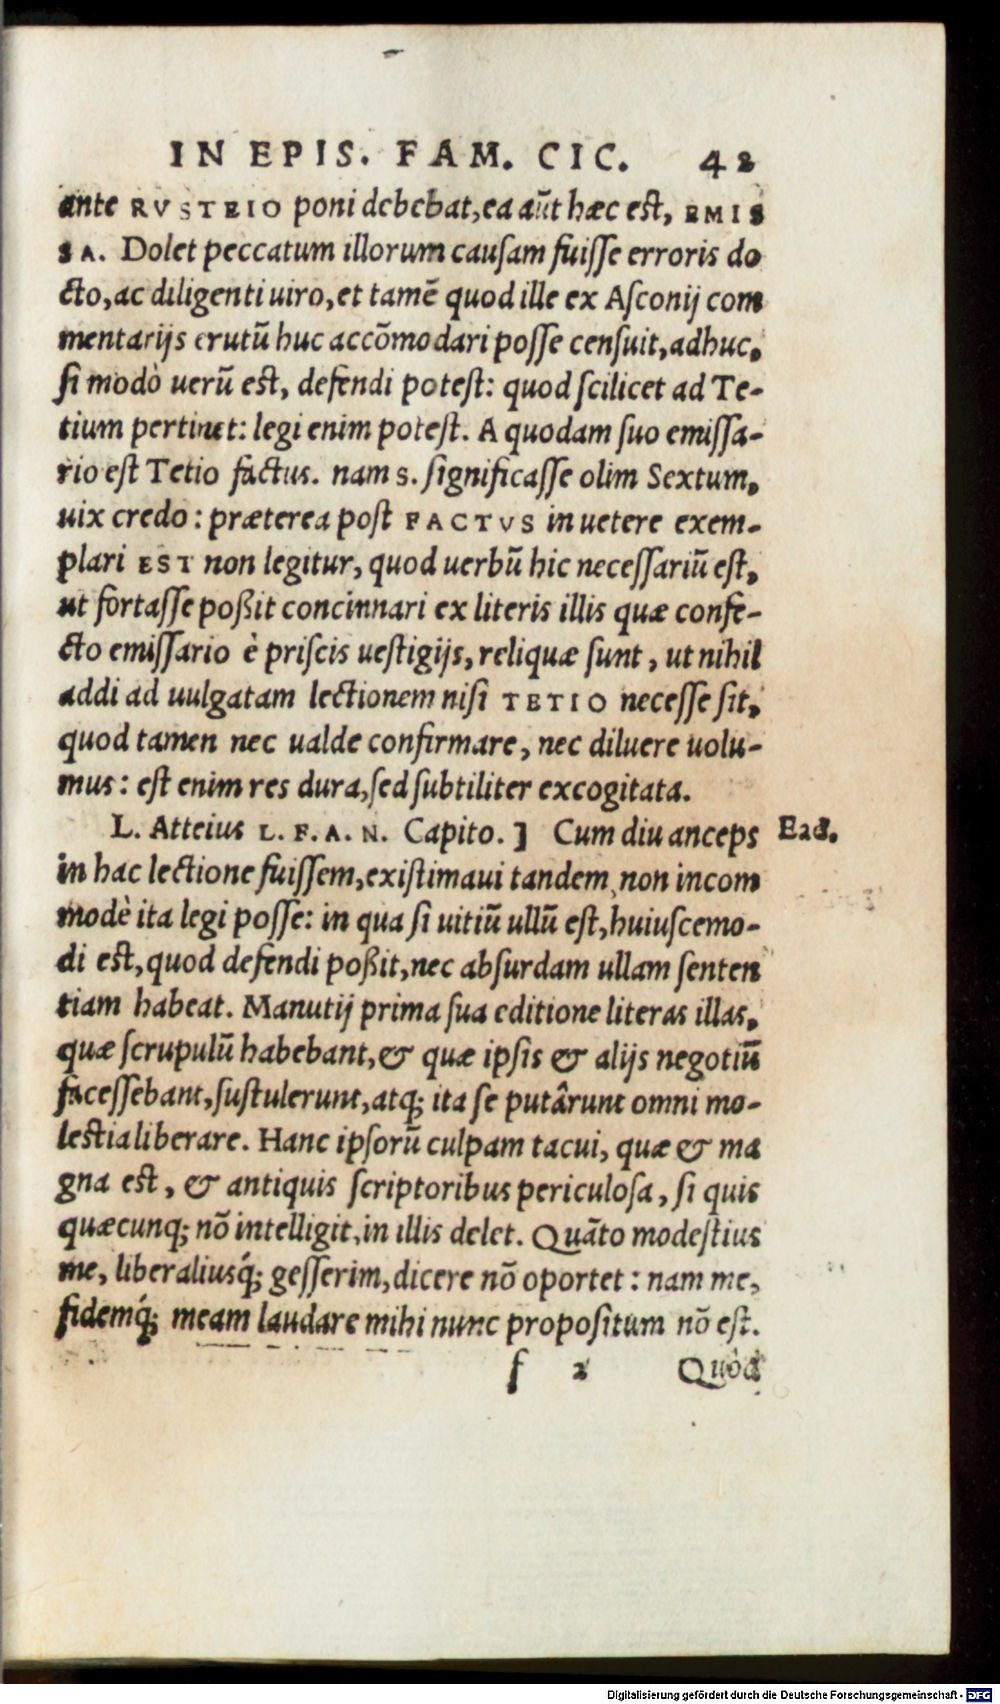 IN EPIS. FAM. CIC. 42
ante RVSTEIO poni debebat, ea aūt hæc est, EMIS
SA. Dolet peccatum illorum causam fuisse erroris do
cto, ac diligenti uiro, et tamē quod ille ex Asconij com
mentarijs erutū huc accōmodari posse censuit, adhuc,
si modò uerū est, defendi potest: quod scilicet ad Te-
tium pertinet: legi enim potest. A quodam suo emissa-
rio est Tetio factus. nam s. significasse olim Sextum,
uix credo: præterea post FACTVS in uetere exem-
plari EST non legitur, quod uerbū hic necessariū est,
ut fortasse poßit concinnari ex literis illis quæ confe-
cto emissario è priscis uestigijs, reliquæ sunt, ut nihil
addi ad uulgatam lectionem nisi TETIO necesse sit,
quod tamen nec ualde confirmare, nec diluere uolu-
mus: est enim res dura, sed subtiliter excogitata.
L. Atteius L. F. A. N. Capito. ] Cum diu anceps Ead.
in hac lectione fuissem, existimaui tandem non incom
modè ita legi posse: in qua si uitiū ullū est, huiuscemo-
di est, quod defendi poßit, nec absurdam ullam senten
tiam habeat. Manutij prima sua editione literas illas,
quæ scrupulū habebant, & quæ ipsis & alijs negotiū
facessebant, sustulerunt, atq; ita se putârunt omni mo-
lestia liberare. Hanc ipsorū culpam tacui, quæ & ma
gna est, & antiquis scriptoribus periculosa, si quis
quæcunq; nō intelligit, in illis delet. Quāto modestius
me, liberaliusq́; gesserim, dicere nō oportet: nam me,
fidemq́; meam laudare mihi nunc propositum nō est.
f 2 Quòd
Digitalisierung gefördert durch die Deutsche Forschungsgemeinschaft - DFG